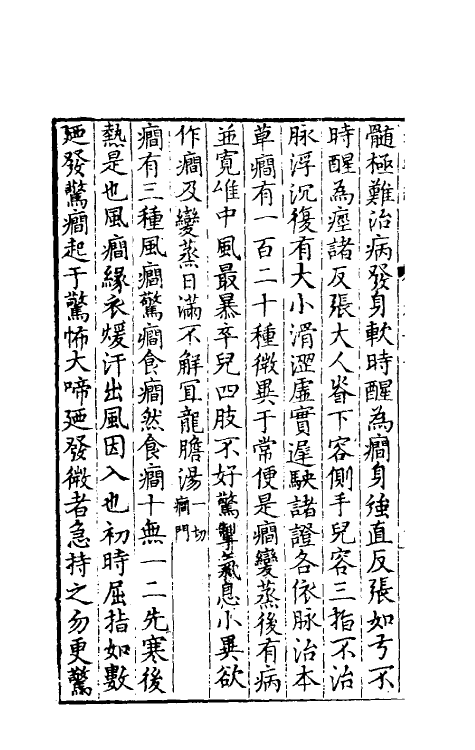 髓極難治病發身軟時醒為癇身強直反張如弓不
時醒為痙諸反張大人脊下容側手兒容三指不治
脉浮沉復有大小滑澀虛實遲駃諸證各依脉治本
草癇有一百二十種微異于常便是癇變蒸後有病
並寛惟中風最暴卒兒四肢不好驚掣氣息小異欲
作癇及變蒸日滿不解冝龍膽湯一切癇門
癇有三種風癇驚癇食癇然食癇十無一二先寒後
熱是也風癇縁衣煖汗出風因入也初時屈指如數
廼發驚癇起于驚怖大啼廼發微者急持之勿更驚